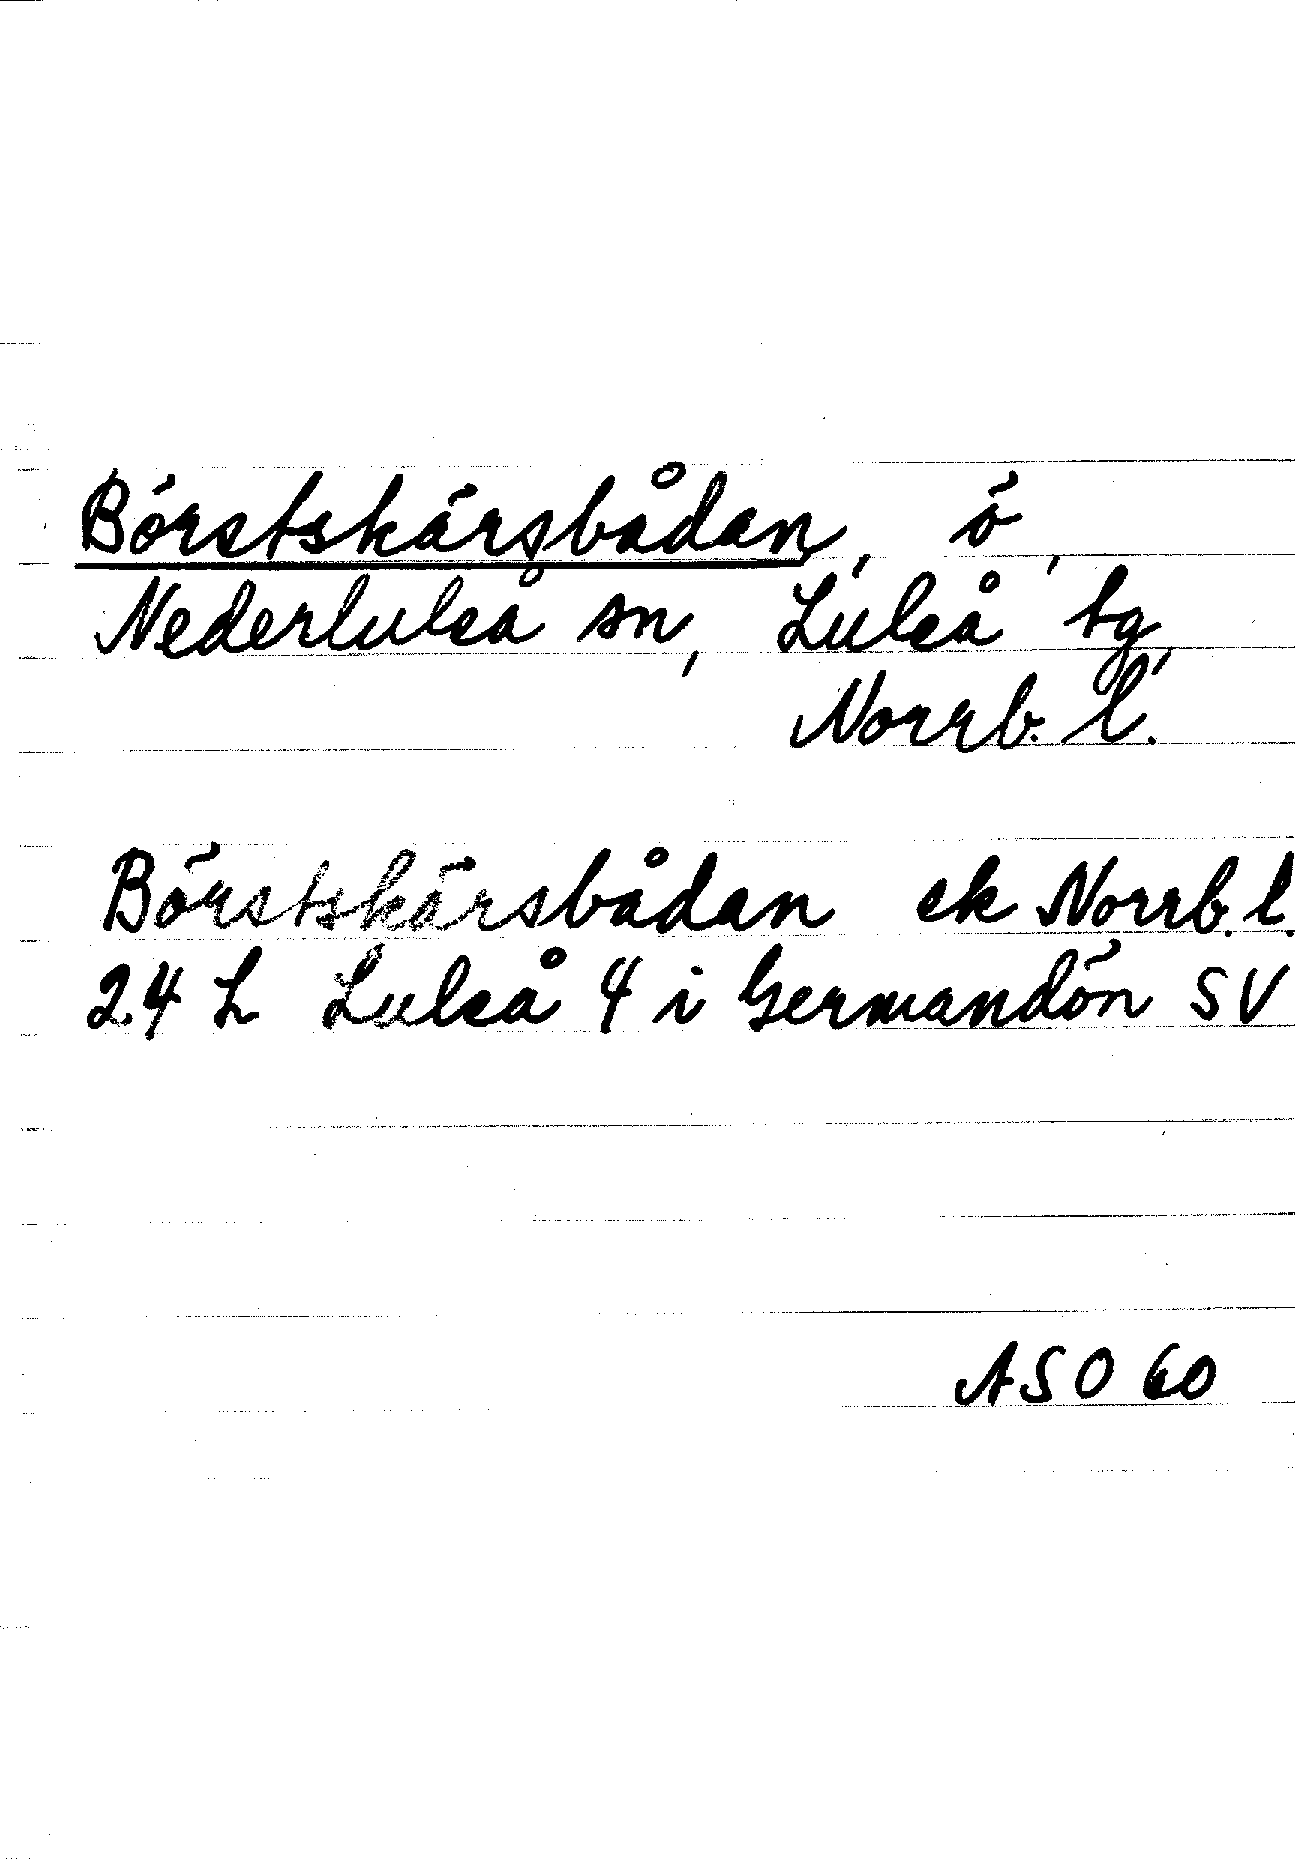 Börstskärsbådan, ö,
Nederluleå sn, Luleå tg,
Norrb. l.
Börstskärsbådan ek Norrb. l.
24 L Luleå 4 i Germandön SV
ASO 60